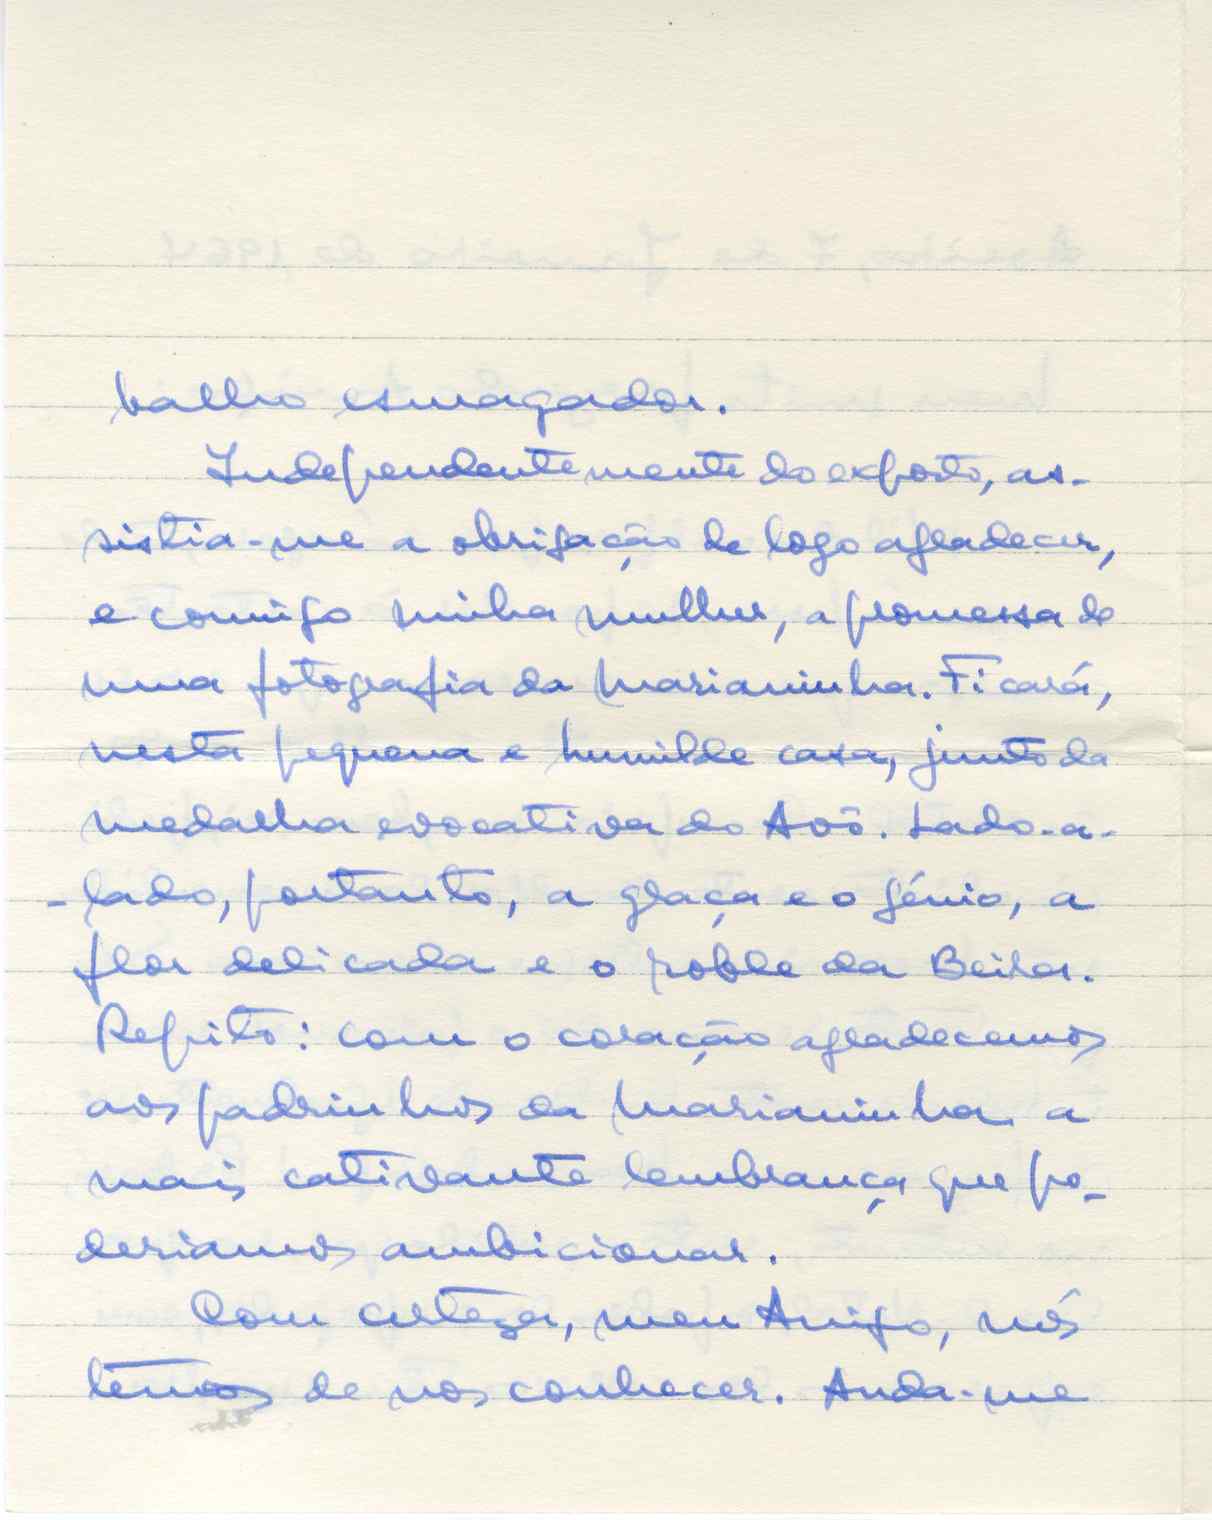 balho esmagador.
Independentemente do exposto, as-
sistia-me a obrigação de logo agradecer,
e comigo minha mulher, a promessa de
uma fotografia da Marianinha. Ficará,
nesta pequena e humilde casa, junto da
medalha evocativa do Avô. Lado-a-
-lado, portanto, a graça e o génio, a
flor delicada e o roble da Beira.
Repito: com o coração agradecemos
aos padrinhos da Marianinha a
mais cativante lembrança que po-
deriamos ambicionar.
Com certeza, meu Amigo, nós
temos de nos conhecer. Anda-me